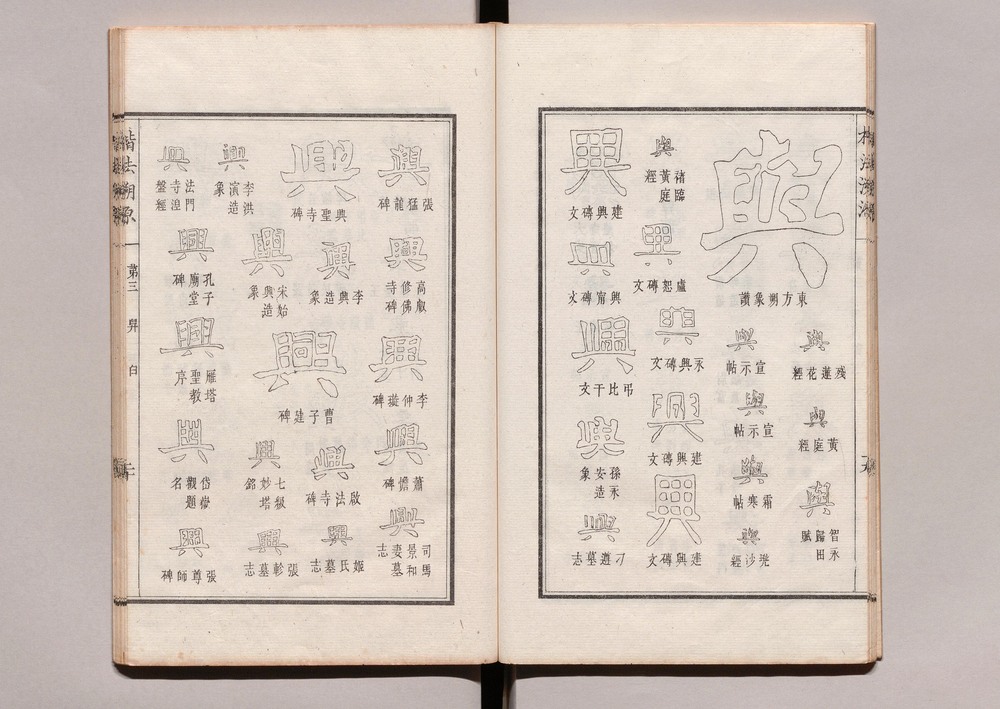 興
東方朔象讚
興
殘蓮花經
興
黃庭經
興
智永歸田賦
興
宣示帖
興
宣示帖
興
霜寒帖
興
兜沙經
興
褚臨黃庭經
興
盧恕磚文
興
永興磚文
興
建興磚文
興
建興磚文
興
建興磚文
興
興甯磚文
興
弔比干文
興
孫永安造象
興
刁遵墓志
興
張猛龍碑
興
高叡修佛寺碑
興
李仲璇碑
興
蕭憺碑
興
司馬景和妻墓志
興
興聖寺碑
興
李興造象
興
曹子建碑
興
啟法寺碑
興
姬氏墓志
興
李洪演造象
興
宋始興造象
興
七級妙塔銘
興
張軫墓志
興
法門寺湼盤經
興
孔子廟堂碑
興
雁塔聖教序
興
岱嶽觀題名
興
張尊師碑
楷法溯源
第三 舁 臼